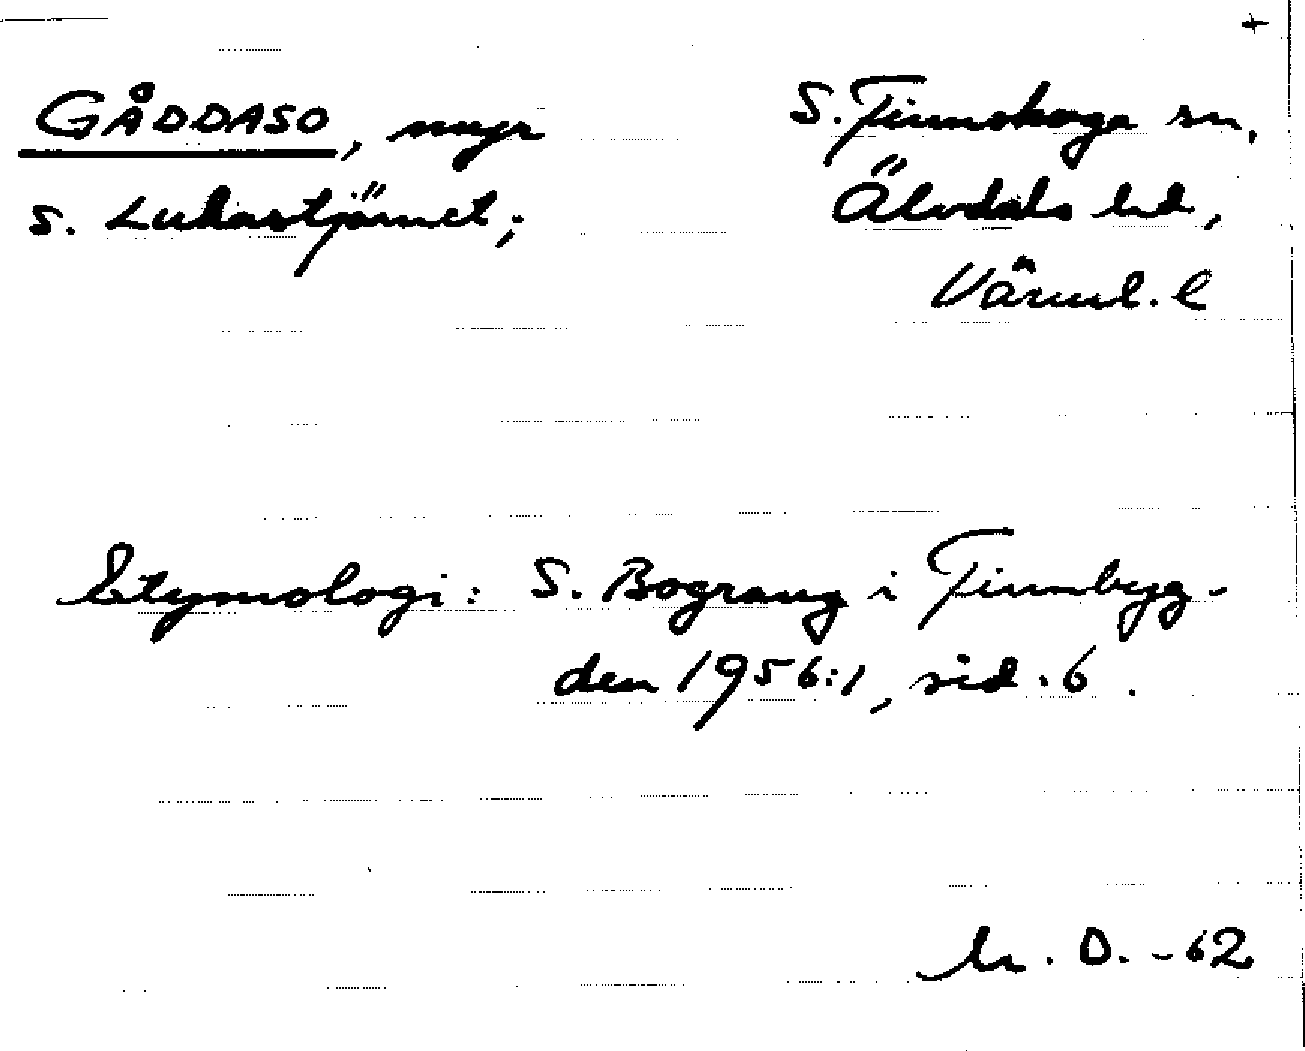 GÅDDASO, myr
S. Finnskoga sn,
s. Lukastjärnet;
Älvdals hd,
Värml. l
Etymologi: S. Bograng i Finnbyg-
den 1956:1, sid. 6.
D. -62